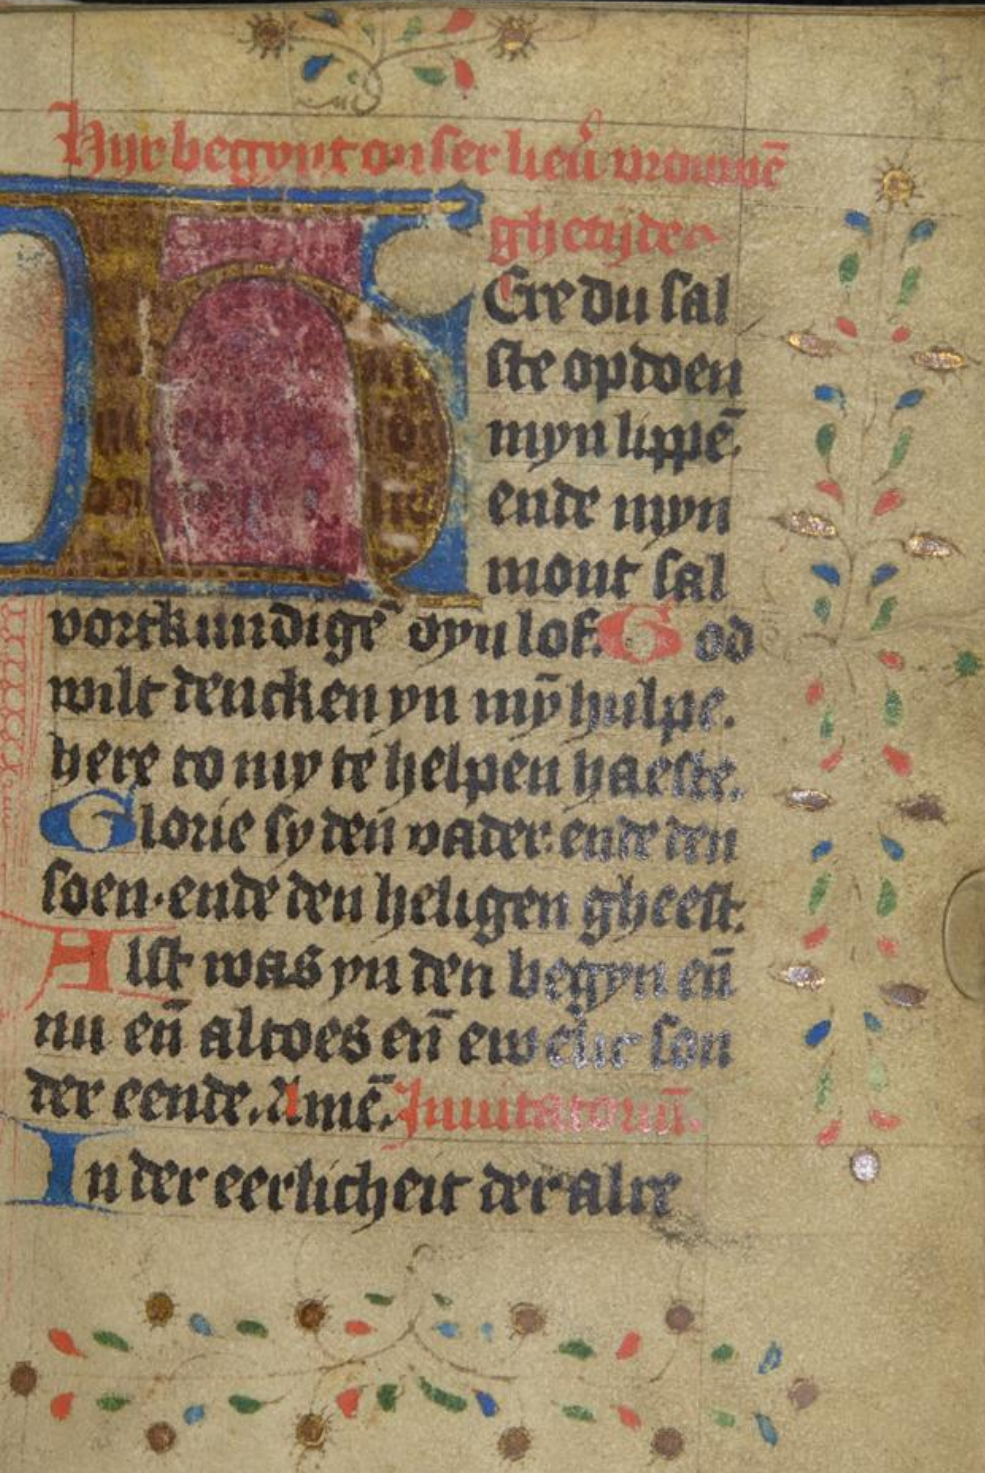 Hyr begynt onser lieu̅ vrouwe̅
ghetijdes
HEre du sal
ste opdoen
myn lippe̅.
ende myn
mont sal
vortkundige̅ dyn lof. God
wilt dencken yn my̅ hulpe.
here to my te helpen haeste.
Glorie sy den vader. ende den
soen. ende den heligen gheest.
Alst was yn den begyn en̅
nu en̅ altoes en̅ ewelic son
der eende. Ame̅. Inuitatoriu̅.
In der eerlicheit der alre